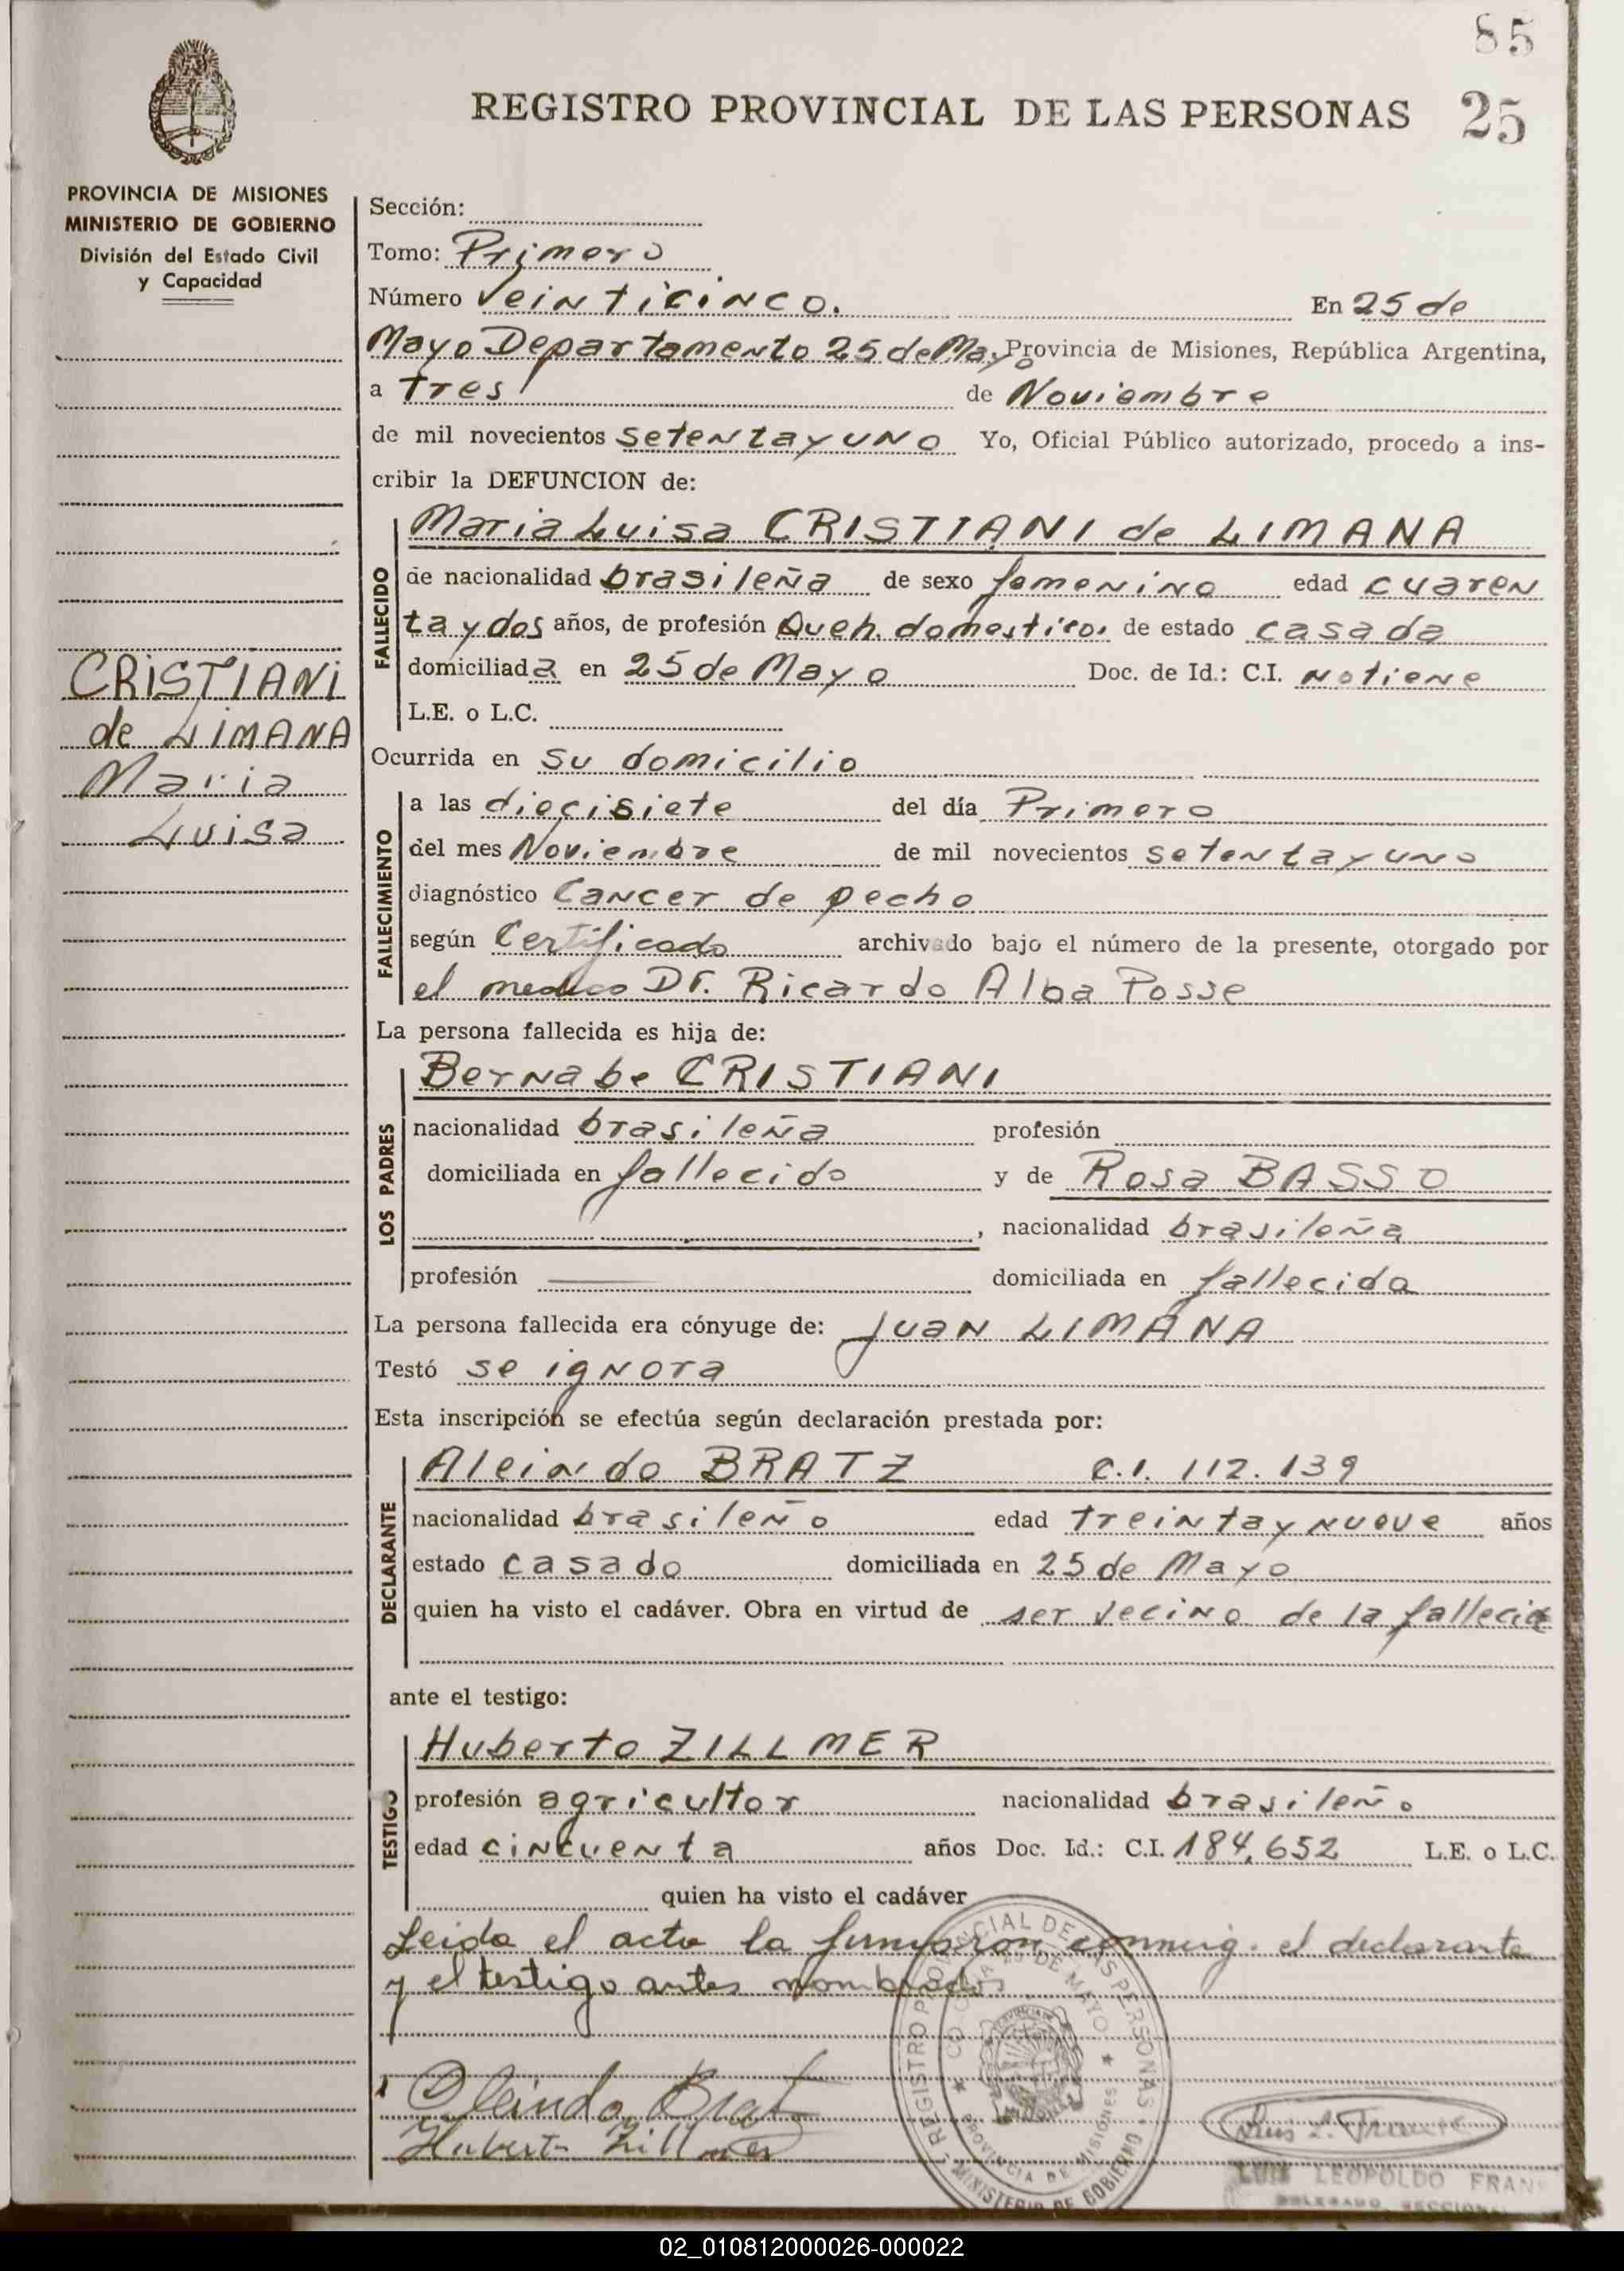 85
REGISTRO PROVINCIAL DE LAS PERSONAS 25
PROVINCIA DE MISIONES
MINISTERIO DE GOBIERNO
División del Estado Civil
y Capacidad
CRISTIANI
de LIMANA
Maria
Luisa
Sección:
Tomo: Primero
Número veinticinco. En 25 de
Mayo Departamento 25 de Mayo Provincia de Misiones, República Argentina,
a tres de Noviembre
de mil novecientos setenta y uno Yo, Oficial Público autorizado, procedo a ins-
cribir la DEFUNCION de:
FALLECIDO
Maria Luisa CRISTIANI de LIMANA
de nacionalidad brasileña de sexo femenino edad cuaren
ta y dos años, de profesión Queh. domesticos de estado casada
domiciliada en 25 de Mayo Doc. de Id.: C.I. no tiene
L.E. o L.C.
Ocurrida en su domicilio
FALLECIMIENTO
a las diecisiete del día Primero
del mes Noviembre de mil novecientos setenta y uno
diagnóstico Cancer de pecho
según Certificado archivado bajo el número de la presente, otorgado por
el medico Dr. Ricardo Alba Posse
La persona fallecida es hija de:
LOS PADRES
Bernabe CRISTIANI
nacionalidad brasileña profesión
domiciliada en fallecido y de Rosa BASSO
, nacionalidad brasileña
profesión domiciliada en fallecida
La persona fallecida era cónyuge de: Juan LIMANA
Testó se ignora
Esta inscripción se efectúa según declaración prestada por:
DECLARANTE
Aleindo BRATZ C.I. 112.139
nacionalidad brasileño edad treinta y nueve años
estado casado domiciliada en 25 de Mayo
quien ha visto el cadáver. Obra en virtud de ser vecino de la fallecid
ante el testigo:
TESTIGO
Huberto ZILLMER
profesión agricultor nacionalidad brasileño
edad cincuenta años Doc. Id.: C.I. 184,652 L.E. o L.C.
quien ha visto el cadáver
Leida el acta la firmaron conmig. el declarante
y el testigo antes nombrados
REGISTRO PROVINCIAL DE LAS PERSONAS
MINISTERIO DE GOBIERNO
25 DE MAYO
PROVINCIA DE MISIONES
Oleindo Bratz
Hubert Zillmer
LUIS LEOPOLDO FRAN
DELEGADO SECCIONAL
02_010812000026-000022